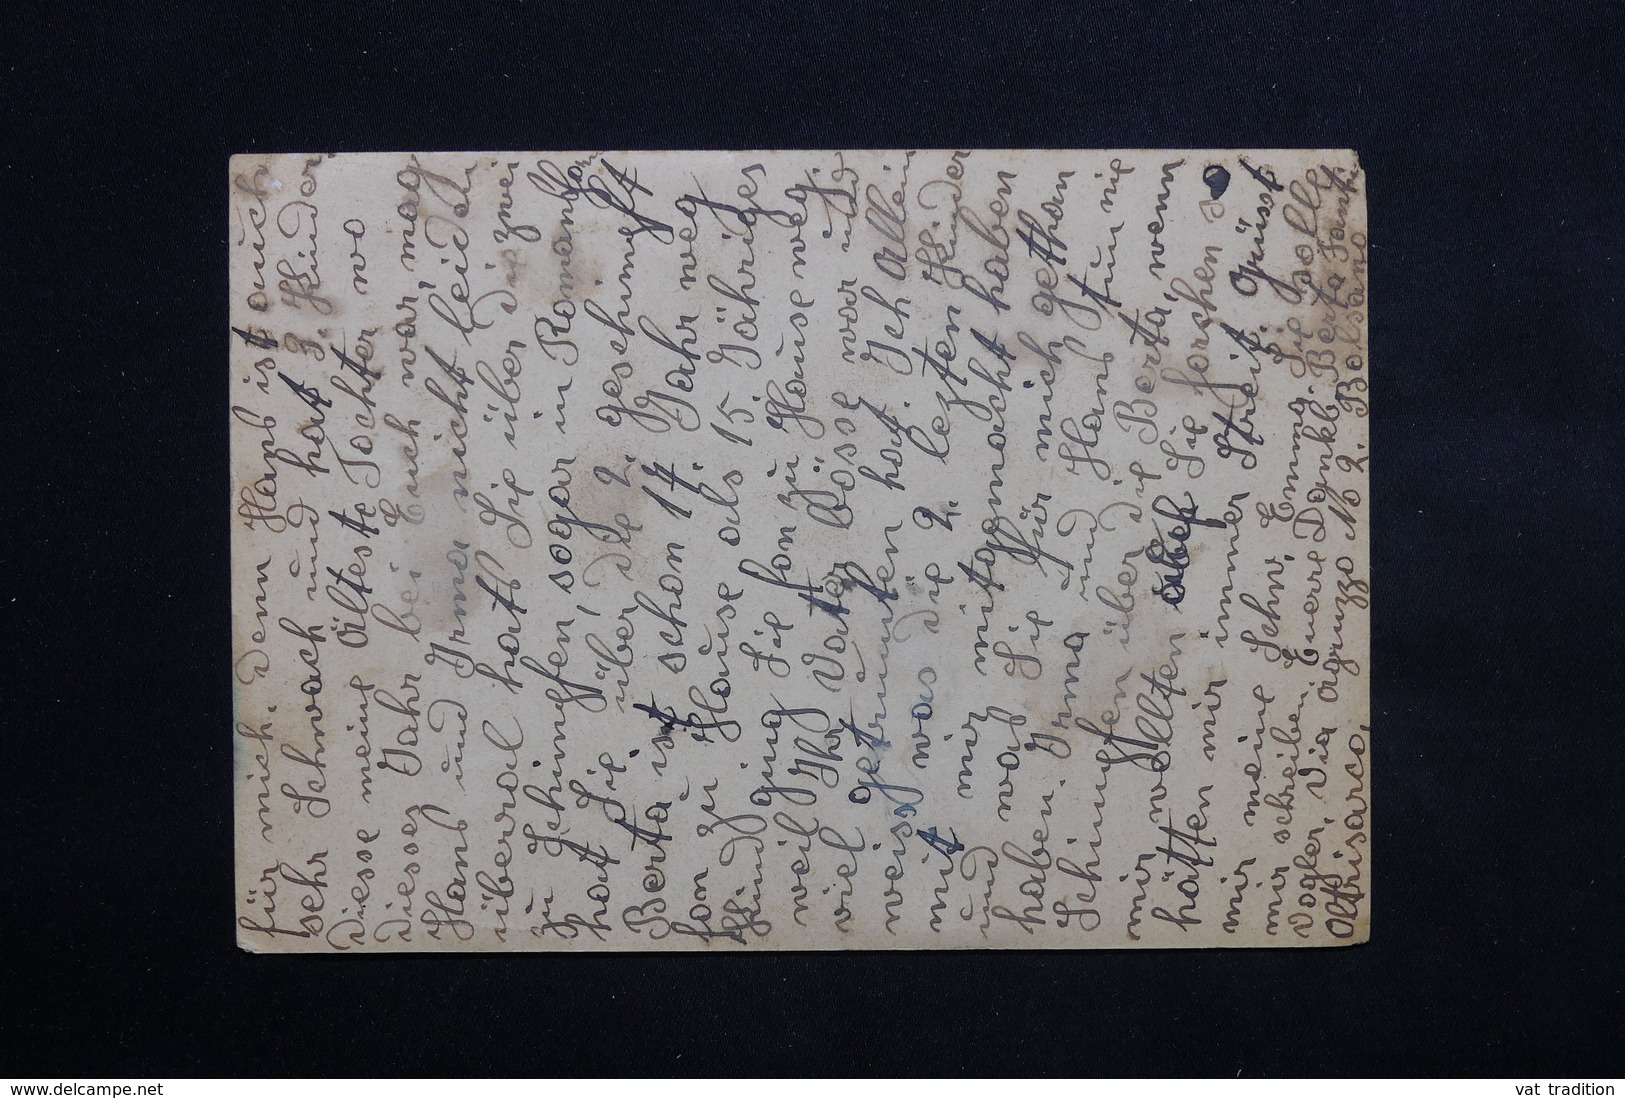 für mich, denn Hans ist auch
sehr Schwach und hat 3. Kinder
Diesse meine Älteste Tochter wo
Diesses Jahr bei Euch war, mag
Hans und Irma nicht leiden
überal hats Sie über die zwei
zu Schimpfen, sogar in Romans
hat Sie, über die 2. geschimpft
Berta ist schon 17. Jahr weg
fon zu Hause als 15. Jähriges
Kind ging Sie fon zu Hause weg.
weil Ihr Vater Bösse war und
viel getrunken hat. Ich Allein
weiss was die 2. lezten Kinder
mit mir mitgemacht haben
und was Sie für mich gethan
haben. Irma und Hans tun nie
Schimpfen über die Berta, wenn
mir wollten Sie forchen
hätten mir immer Streit. Grüsst
mir meine Schw, Emma. Sie solle
mir schreiben, Euere Dankb, Berta
Vogler, Via Agruzzo No 2. Bolsano
Oltrisarco,
www.delcampe.net
vat tradition